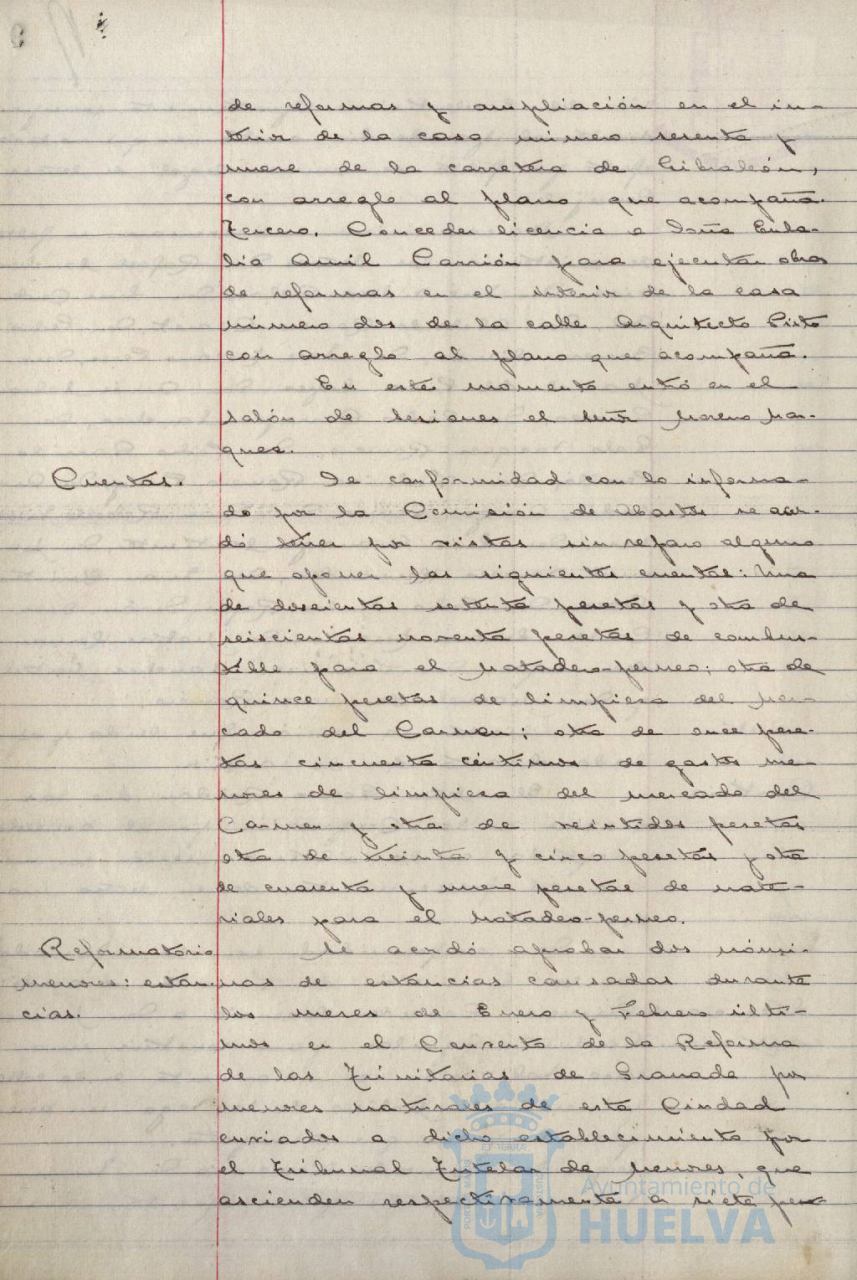 de reformas y ampliación en el in-
terior de la casa número sesenta y
nueve de la carretera de Gibraleón,
con arreglo al plano que acompaña.
Tercero. Conceder licencia a Doña Eula-
lia Amil Carrión para ejecutar obras
de reformas en el interior de la casa
número dos de la calle Arquitecto Pinto
con arreglo al plano que acompaña.
En este momento entró en el
salón de sesiones el señor Moreno Mar-
quez.
Cuentas.
De conformidad con lo informa-
do por la Comisión de Abastos se acor-
dó tener por vistas sin reparo alguno
que oponer las siguientes cuentas: Una
de doscientas setenta pesetas y otra de
seiscientas noventa pesetas de combus-
tille para el Matadero-perneo; otra de
quince pesetas de limpiesa del Mer-
cado del Carmen; otra de once pese-
tas cincuenta céntimos de gastos me-
nores de limpiesa del mercado del
Carmen y otra de veintidos pesetas
otra de treinta y cinco pesetas y otra
de cuarenta y nueve pesetas de mate-
riales para el Matadero-perneo.
Reformatorio
menores: están-
cias.
Se acordó aprobar dos nómi-
nas de estancias causadas durante
los meses de Enero y Febrero últi-
mos en el Convento de la Reforma
de las Trinitarias de Granada por
menores naturales de esta Ciudad
enviados a dicho establecimiento por
el Tribunal Tutelar de Menores, que
ascienden respectivamente a siete pese-
Ayuntamiento de
HUELVA